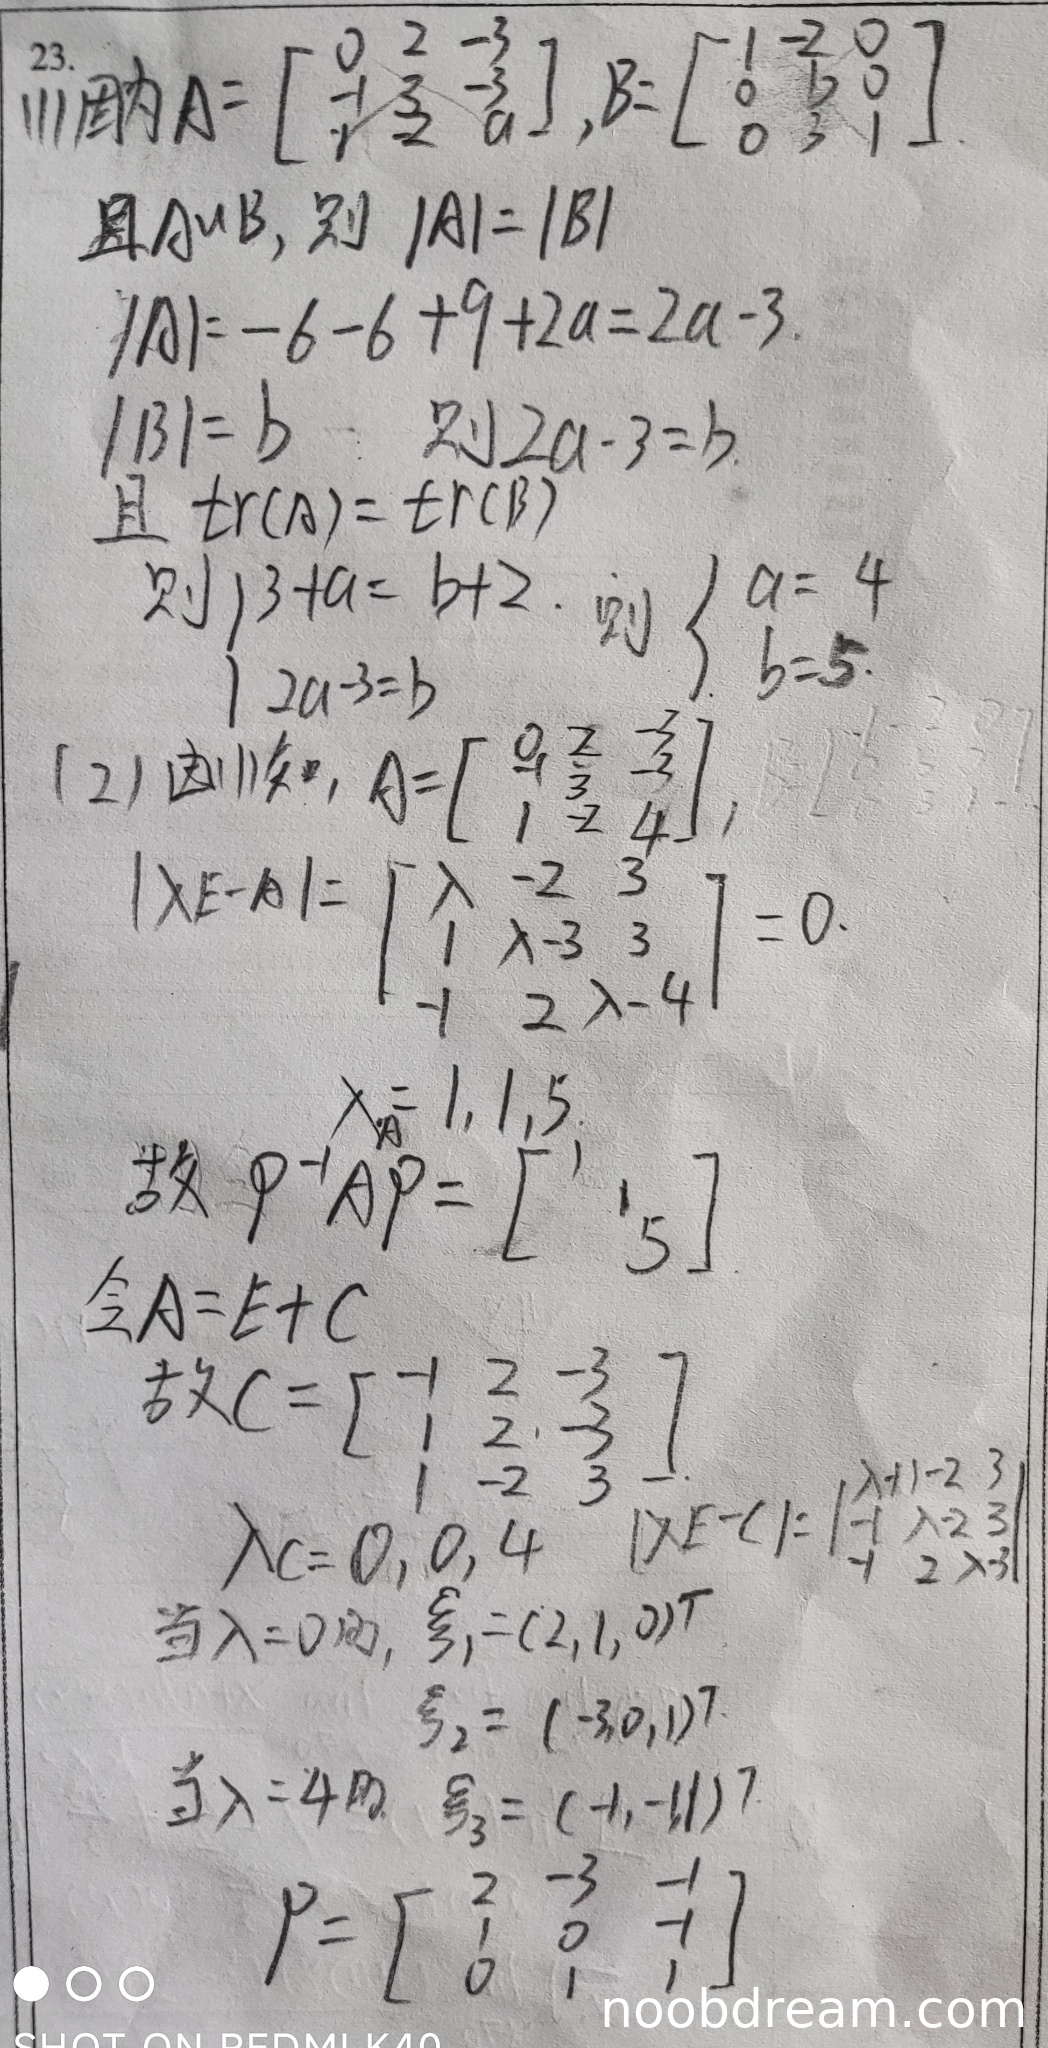 23.
(1)因为A=[0 2 -3
-1 3 -3
1 -2 a], B=[1 -2 0
0 b 0
0 3 1].
且A∽B, 则 |A|=|B|
|A|=-6-6+9+2a=2a-3.
|B|=b 则2a-3=b.
且 tr(A)=tr(B)
则{3+a=b+2. 则{a=4
2a-3=b b=5.
(2)由(1)知, A=[0 2 -3
-1 3 -3
1 -2 4],
|λE-A|=[λ -2 3
1 λ-3 3
-1 2 λ-4]=0.
λA=1,1,5.
故 P⁻¹AP=[1
1
5]
令A=E+C
故C=[-1 2 -3
1 2 -3
1 -2 3]
λC=0,0,4 |λE-C|=|λ+1 -2 3
-1 λ-2 3
-1 2 λ-3|
当λ=0时, ξ₁=(2,1,0)ᵀ
ξ₂=(-3,0,1)ᵀ.
当λ=4时 ξ₃=(-1,-1,1)ᵀ.
P=[2 -3 -1
1 0 -1
0 1 1]
noobdream.com
SHOT ON REDMI K40